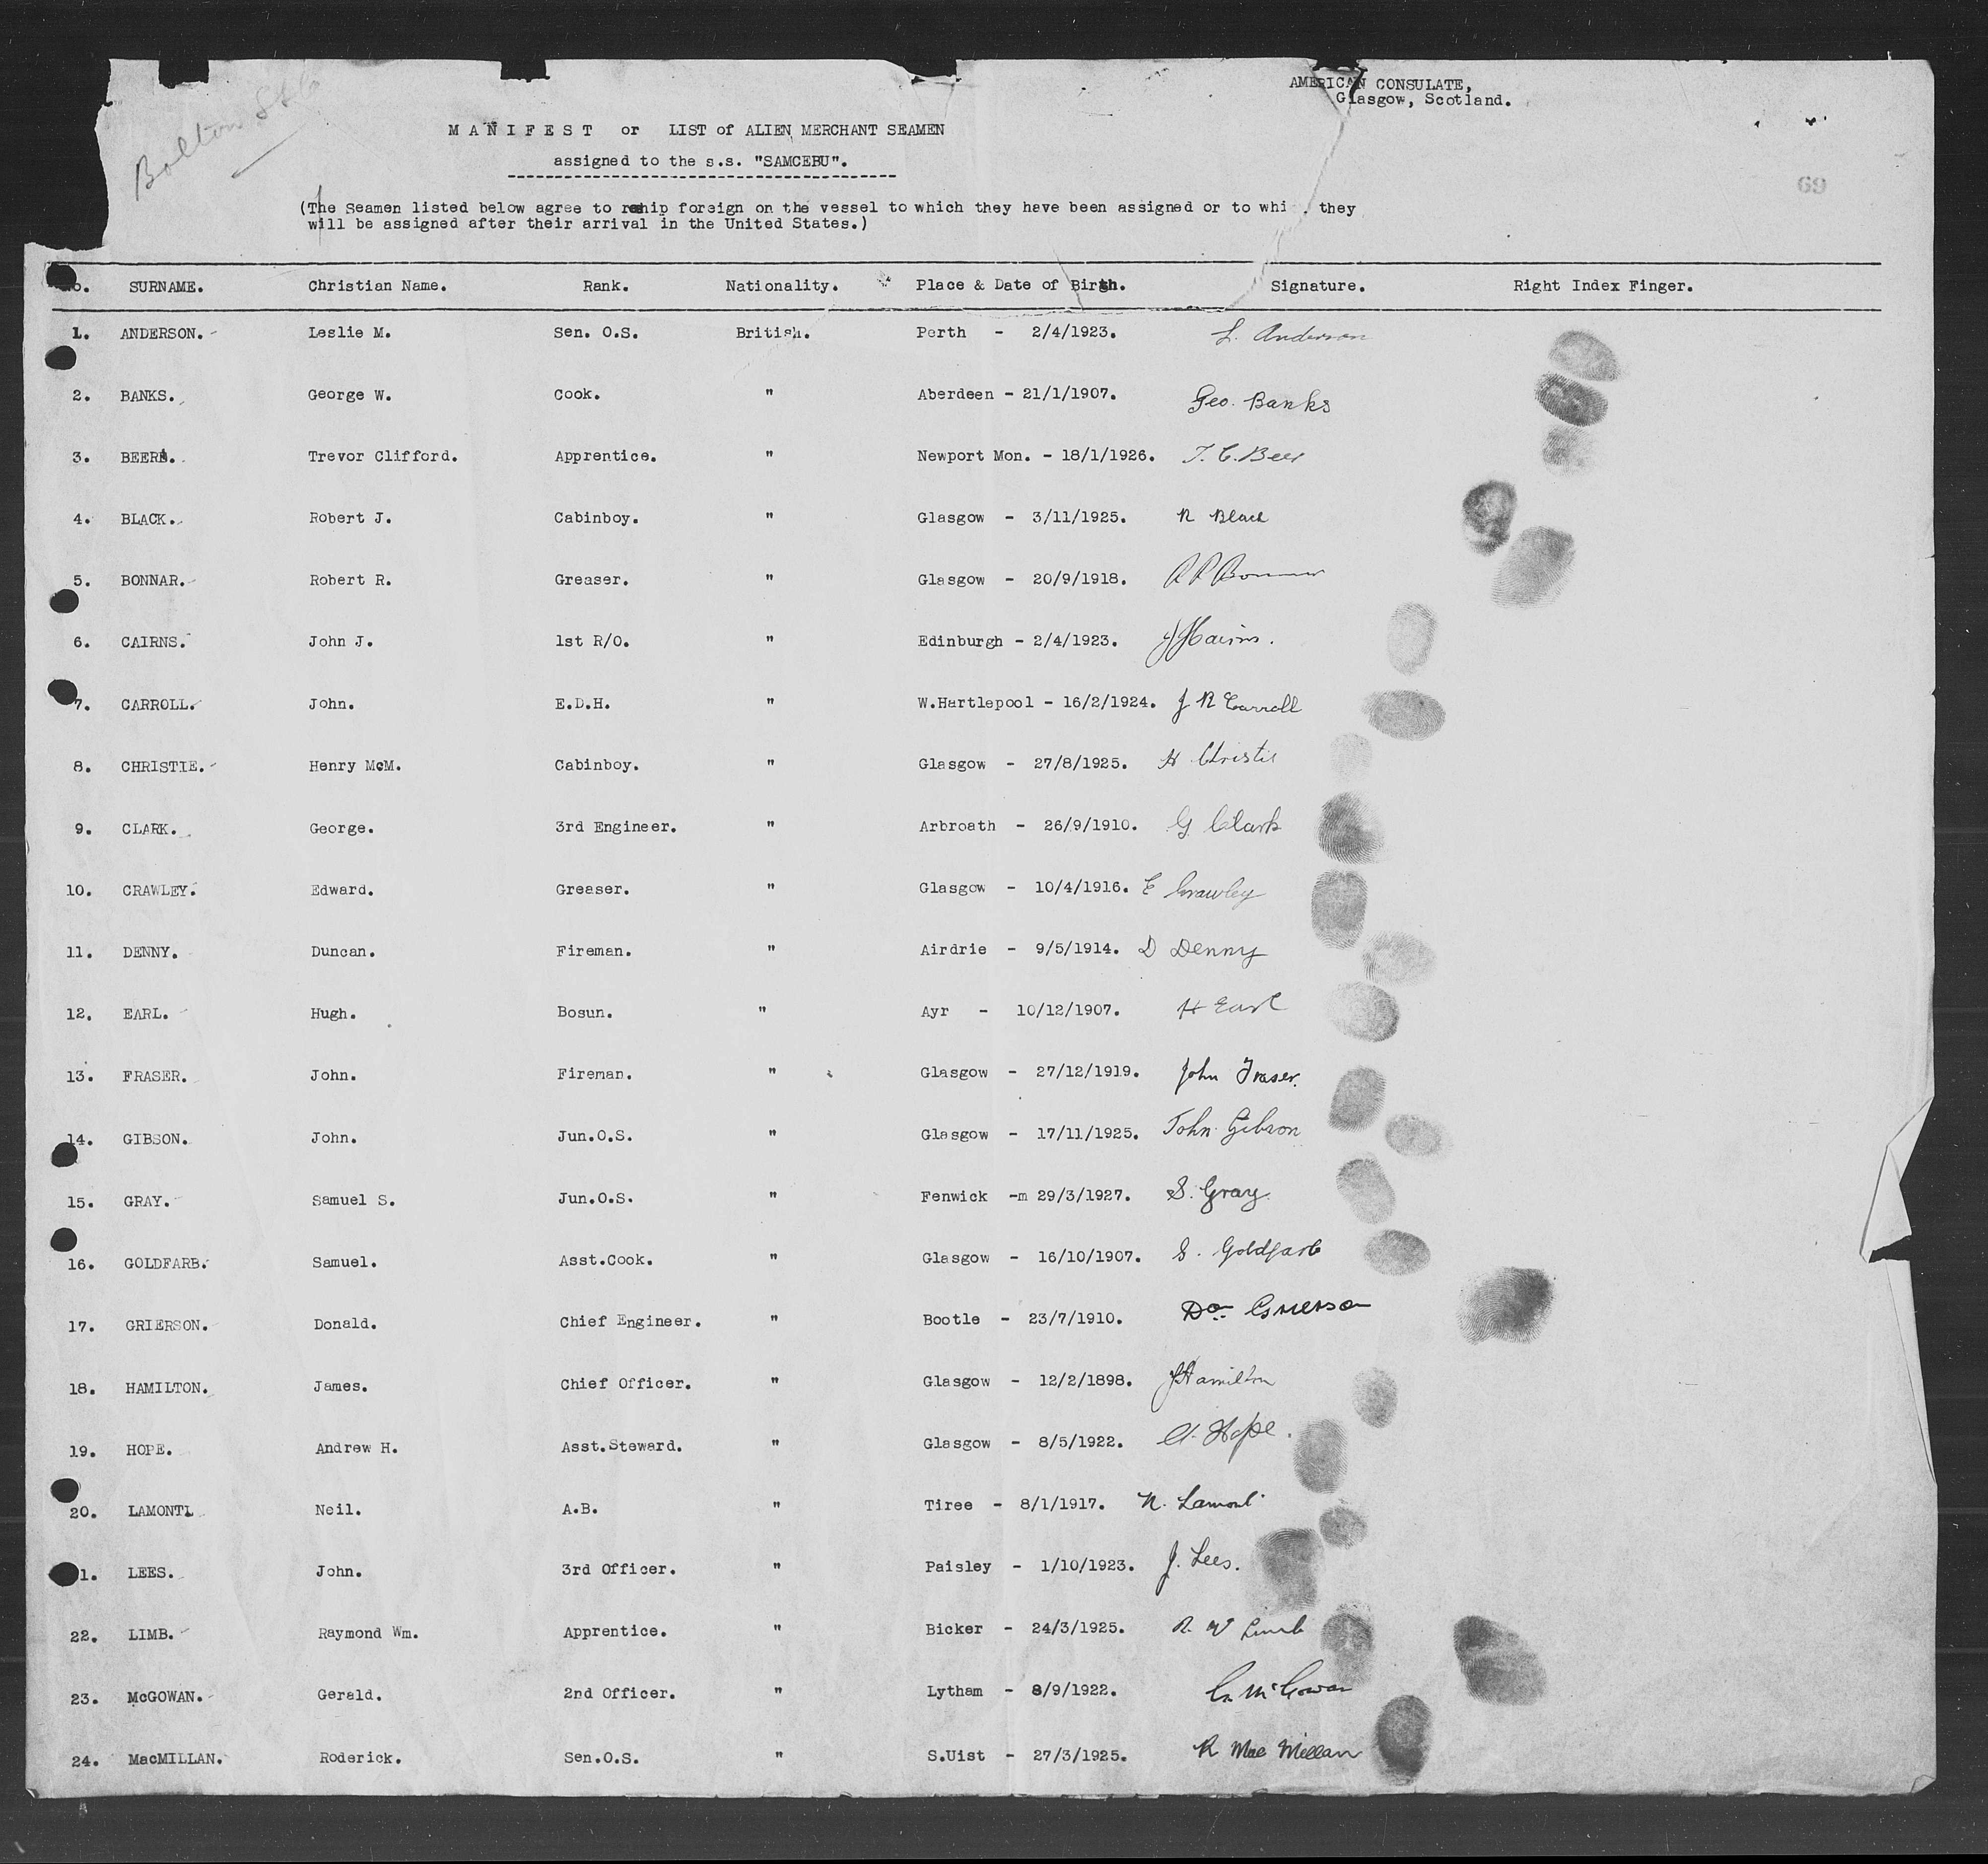 AMERICAN CONSULATE,
Glasgow, Scotland.
Bolton
MANIFEST or LIST of ALIEN MERCHANT SEAMEN
assigned to the s.s. "SAMCEBU".
69
(The Seamen listed below agree to reship foreign on the vessel to which they have been assigned or to whi they
will be assigned after their arrival in the United States.)
No. SURNAME. Christian Name. Rank. Nationality. Place & Date of Birth. Signature. Right Index Finger.
1. ANDERSON. Leslie M. Sen. O.S. British. Perth - 2/4/1923. L. Anderson
2. BANKS. George W. Cook. " Aberdeen - 21/1/1907. Geo. Banks
3. BEER. Trevor Clifford. Apprentice. " Newport Mon. - 18/1/1926. T. C. Beer
4. BLACK. Robert J. Cabinboy. " Glasgow - 3/11/1925. R Black
5. BONNAR. Robert R. Greaser. " Glasgow - 20/9/1918. R R Bonnar
6. CAIRNS. John J. 1st R/O. " Edinburgh - 2/4/1923. JJCairns.
7. CARROLL. John. E.D.H. " W.Hartlepool - 16/2/1924. J R Carroll
8. CHRISTIE. Henry McM. Cabinboy. " Glasgow - 27/8/1925. H Christie
9. CLARK. George. 3rd Engineer. " Arbroath - 26/9/1910. G Clark
10. CRAWLEY. Edward. Greaser. " Glasgow - 10/4/1916. E Crawley
11. DENNY. Duncan. Fireman. " Airdrie - 9/5/1914. D Denny
12. EARL. Hugh. Bosun. " Ayr - 10/12/1907. H Earl
13. FRASER. John. Fireman. " Glasgow - 27/12/1919. John Fraser.
14. GIBSON. John. Jun.O.S. " Glasgow - 17/11/1925. John Gibson
15. GRAY. Samuel S. Jun.O.S. " Fenwick -m 29/3/1927. S. Gray.
16. GOLDFARB. Samuel. Asst.Cook. " Glasgow - 16/10/1907. S. Goldfarb
17. GRIERSON. Donald. Chief Engineer. " Bootle - 23/7/1910. Do Grierson
18. HAMILTON. James. Chief Officer. " Glasgow - 12/2/1898. JHamilton
19. HOPE. Andrew H. Asst.Steward. " Glasgow - 8/5/1922. A. Hope.
20. LAMONT. Neil. A.B. " Tiree - 8/1/1917. N. Lamont
1. LEES. John. 3rd Officer. " Paisley - 1/10/1923. J. Lees.
22. LIMB. Raymond Wm. Apprentice. " Bicker - 24/3/1925. R. W Limb
23. McGOWAN. Gerald. 2nd Officer. " Lytham - 8/9/1922. G. McGowan
24. MacMILLAN. Roderick. Sen.O.S. " S.Uist - 27/3/1925. R Mac Millan